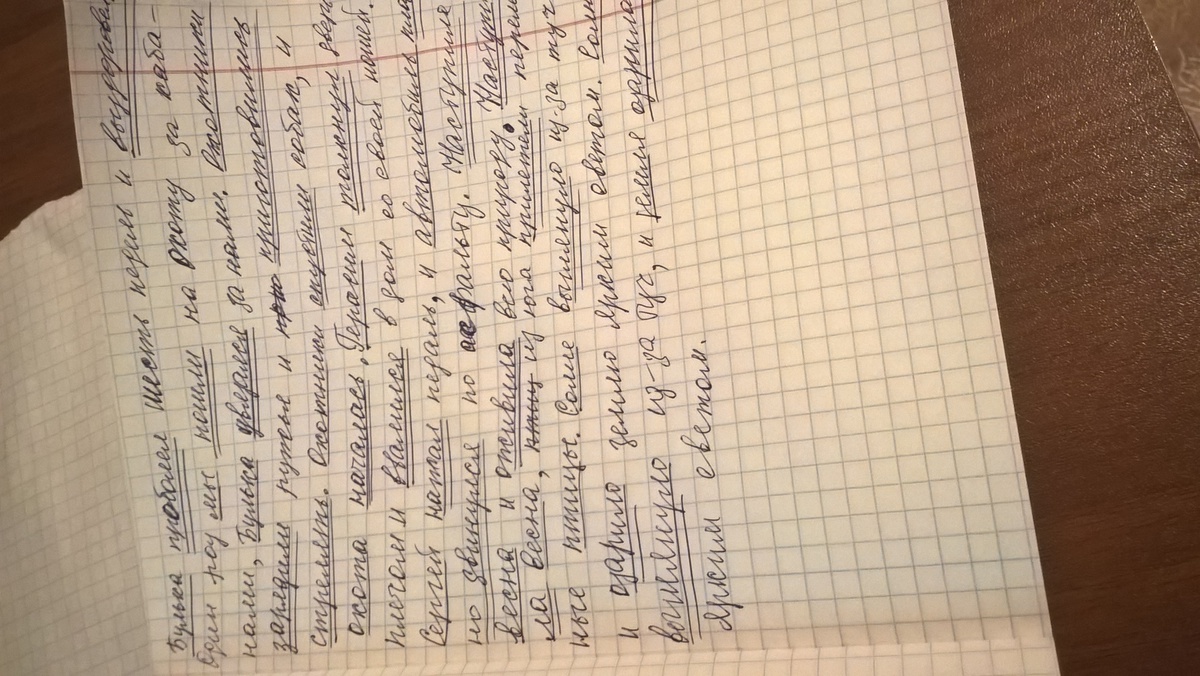 Булька проболел шесть недель и выздоровел
Один раз мы пошли на охоту за каба-
нами, Булька увязался за нами. Охотники
зарядили ружья и приготовились
стрелять. Охотники спустили собак, и
охота началась. Герасим толкнул дверь
плечом и ввалился в дом со своей ношей.
Сергей нажал педаль, и автомобиль плав
но двинулся по асфальту. Наступила
весна и оживила всю природу. Наступи
ла весна, из юга прилетели перелёт
ные птицы. Солнце выглянуло из-за туч
и озарило землю ярким светом. Солнце
выглянуло из-за туч, и земля озарила
ярким светом.